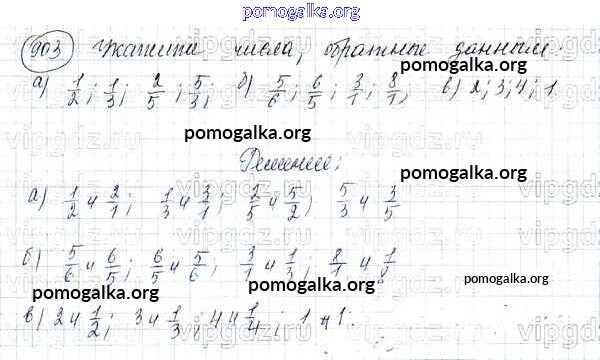 pomogalka.org
903 Укажите числа, обратные данным:
pomogalka.org
а) 1/2; 1/3; 2/5; 5/3; б) 5/6; 6/5; 3/1; 8/1; в) 2; 3; 4; 1
pomogalka.org
pomogalka.org
Решение:
pomogalka.org
а) 1/2 и 2/1; 1/3 и 3/1; 2/5 и 5/2; 5/3 и 3/5
б) 5/6 и 6/5; 6/5 и 5/6; 3/1 и 1/3; 8/1 и 1/8
pomogalka.org
pomogalka.org
pomogalka.org
в) 2 и 1/2; 3 и 1/3; 4 и 1/4; 1 и 1.